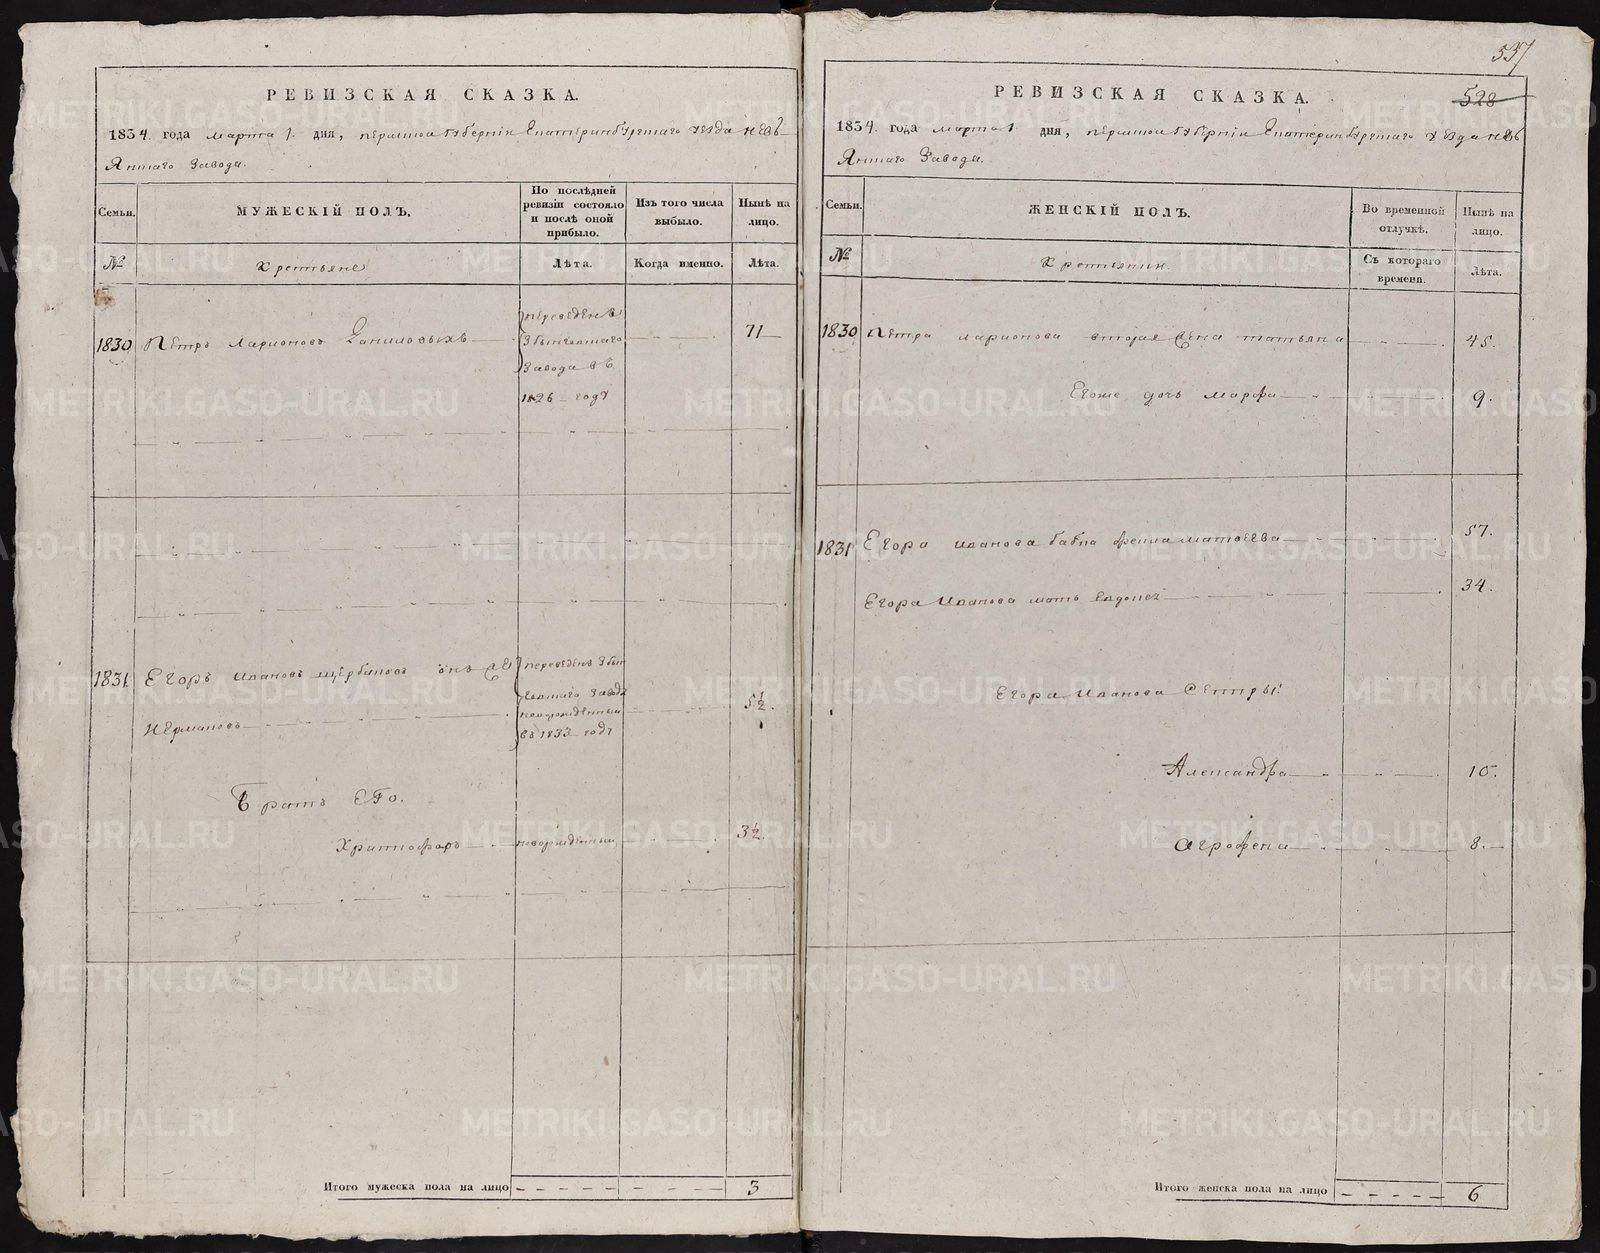 РЕВИЗСКАЯ СКАЗКА.
1834. года марта 1. дня, пермской губернiи Екатеринбургскаго уезда невь
Янскаго Завода.
Семьи.
МУЖЕСКIЙ ПОЛЪ.
По послѣдней ревизiи состояло и послѣ оной прибыло.
Изъ того числа выбыло.
Нынѣ на лицо.
№
Крестьяне
Лѣта.
Когда именно.
Лѣта.
1830
Петръ Ларионовъ Даниловыхъ
переведенъ
Завода въ
1826 году
71
1831
Егоръ Ивановъ щербаковъ онъ же
Переведенъ
Завода
новорожденный
въ 1833 году
5½.
Братъ его.
новорожденный
3½.
Итого мужеска пола на лицо
3
537
528
РЕВИЗСКАЯ СКАЗКА.
1834. года марта 1. дня, пермской губернiи Екатеринбургскаго уезда невь
Янскаго Завода.
Семьи.
ЖЕНСКIЙ ПОЛЪ.
Во временной отлучкѣ.
Нынѣ на лицо.
№
Крестьянки.
Съ котораго времени.
Лѣта.
1830
Петра Ларионова вторая жена татьяна
45.
Егоже дочь марфа
9.
1831
Егора иванова бабка
57.
Егора Иванова мать
34.
Егора Иванова Сестры:
Александра
10.
Агрофена
8.
Итого женска пола на лицо
6
METRIKI.GASO-URAL.RU